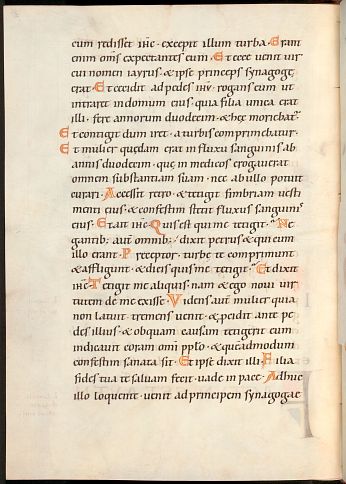 cum redisset ihc̄ excepit illum turba. Erant
enim om̄s expectantes eum. Et ecce uenit uir
cui nomen iayrus & ipse princeps synagogę
erat. Et cecidit ad pedes ihū rogans eum ut
intraret in domum eius. quia filia unica erat
illi. fere annorum duodecim. & hęc moriebat᷑.
Et contigit dum iret. a turbis comprimebatur.
Et mulier quędam erat in fluxu sanguinis ab
annis duodecim. quę in medicos erogauerat
omnem substantiam suam. nec ab ullo potuit
curari. Accessit retro. & tetigit fimbriam uesti
menti eius. & confestim stetit fluxus sanguinis
eius. Et ait ihc̄. Quis est qui me tetigit. Ne
gantib; aut̄ omnib; dixit petrus & qui cum
illo erant. Preceptor. turbę te comprimunt
& affligunt. & dicis quis me tetigit. Et dixit
ihc̄. Tetigit me aliquis. nam & ego noui uir
tutem de me exisse. Videns aut̄ mulier quia
non latuit. tremens uenit. & pcidit ante pe
des illius. & ob quam causam tetigerit eum
indicauit coram omi pplo. & quęadmodum
confestim sanata sit. Et ipse dixit illi. Filia
fides tua te saluam fecit. uade in pace. Adhuc
illo loquente. uenit ad principem synagogae